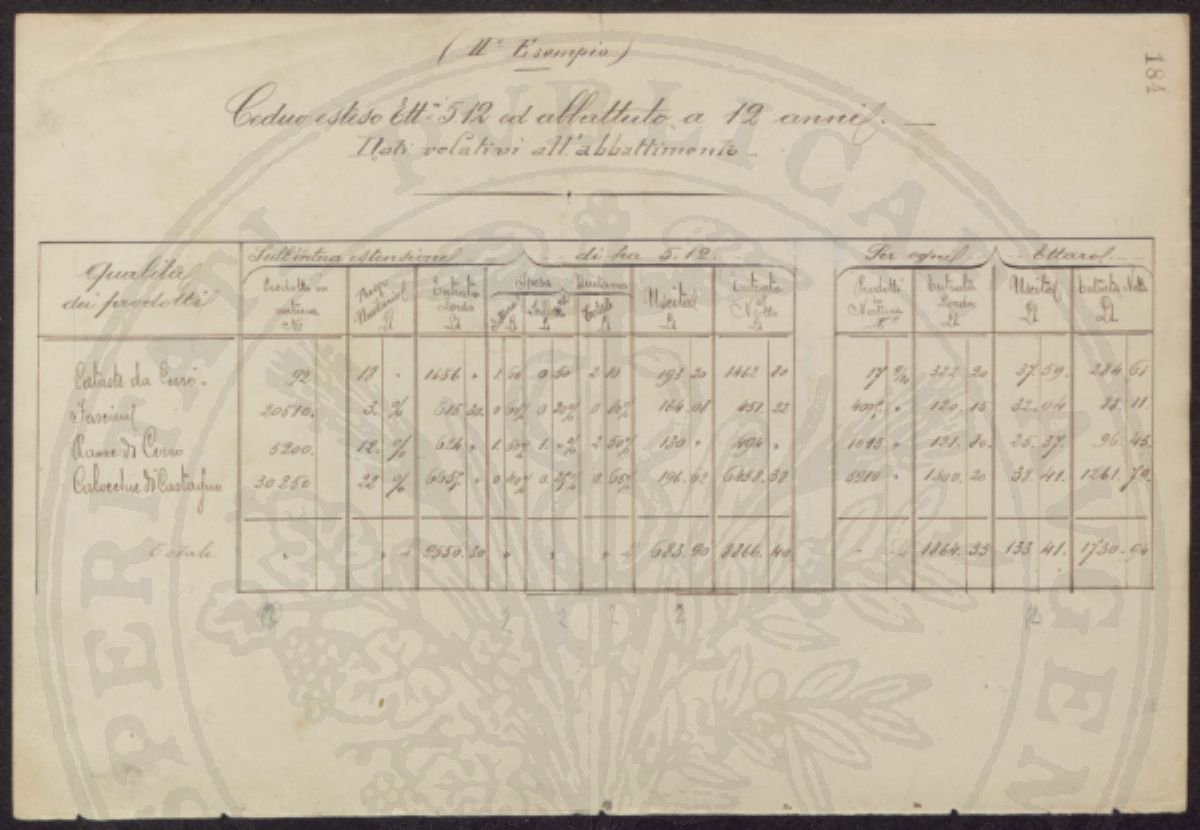 184
(IIº Esempio)
Ceduo esteso Ettⁱ 5.12 ed abbattuto a 12 anni.
Dati relativi all'abbattimento
Qualità dei prodotti
Sull'intera estensione di ha 5.12.
Per ogni Ettaro
Prodotto in natura Nº
Prezzo Unitario £
Entrata Lorda £
Spesa Unitaria
£ £ Totale £
Uscita £
Entrata Netta £
Prodotti in Natura
Entrata Lorda £
Uscita £
Entrata Netta £
Cataste da Cerro 92 18 " 1656 " 1.60 0 50 2 10 193 20 1462 80 17 322 20 37.59. 284 61
Fascine 20510. 3. % 615.30. 0 % 0 20% 0 80% 164.08 451.22 120.15 32.04 88.11.
di Cerro 5200. 12. % 624 " 1.50% 1. "% 2 50% 130 " 494 " 121.80. 25.37. 96.45.
Calocchie di Castagno 30250 22 % 6655 " 0 40% 0.25% 0 65% 196.62 6458.38 5910 1300.20 38.41. 1261.79.
Totale " " " 9550.30 " " " 683.90 8866.40 1864.35 133.41. 1730.94
SPERANT PUBLICA VIGENT